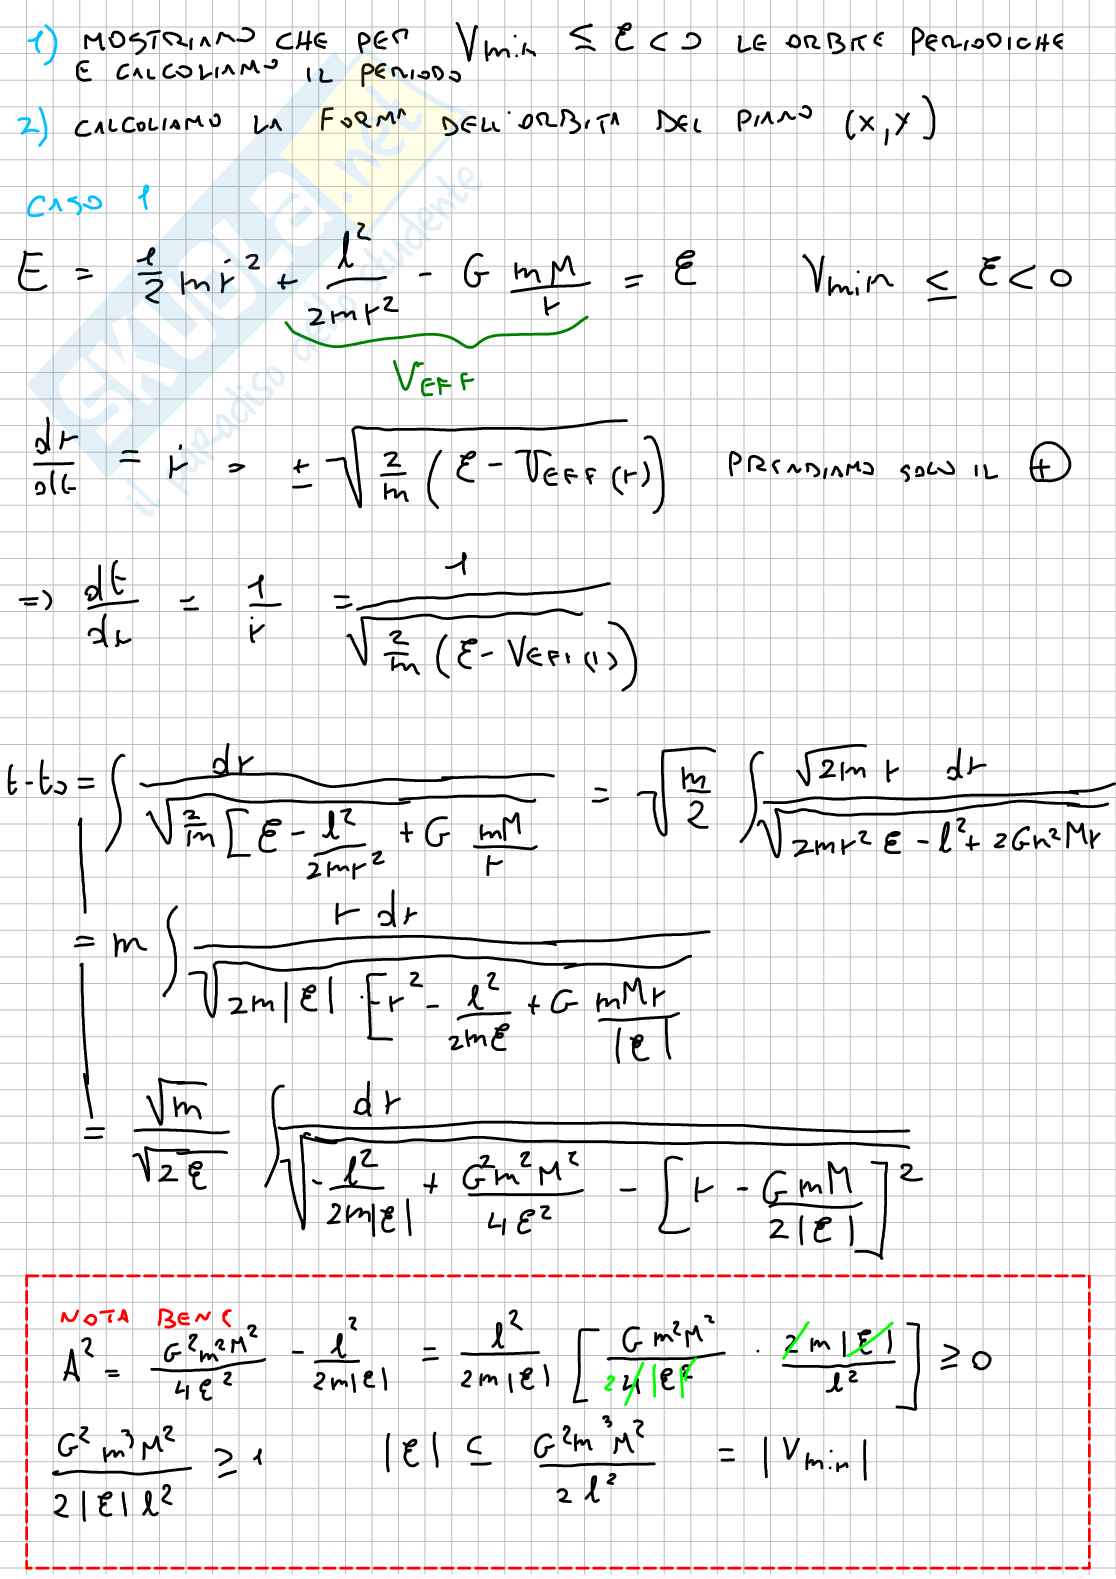 1) MOSTRIAMO CHE PER Vmin ≤ ℰ < 0 LE ORBITE PERIODICHE
E CALCOLIAMO IL PERIODO
2) CALCOLIAMO LA FORMA DELL'ORBITA DEL PIANO (x,y)
CASO 1
E = 1/2 m ṙ² + l²/(2mr²) - G mM/r = ℰ   Vmin ≤ ℰ < 0
VEFF
dr/dt = ṙ = ± √(2/m (ℰ - VEFF(r)))   PRENDIAMO SOLO IL ⊕
=> dt/dr = 1/ṙ = 1/√(2/m (ℰ - VEFF(r)))
t-t₀ = ∫ dr/√(2/m [ℰ - l²/(2mr²) + G mM/r]) = √(m/2) ∫ √(2m) r dr/√(2mr² ℰ - l² + 2Gm²Mr)
= m ∫ r dr/√(2m|ℰ| · [-r² - l²/(2mℰ) + G mMr/|ℰ|])
= √m/√(2ℰ) ∫ dr/√(-l²/(2m|ℰ|) + G²m²M²/(4ℰ²) - [r - GmM/(2|ℰ|)]²)
NOTA BENE
A² = G²m²M²/(4ℰ²) - l²/(2m|ℰ|) = l²/(2m|ℰ|) [G m²M²/(2 4|ℰ|²) · 2m|ℰ|/l²] ≥ 0
G² m³ M²/(2|ℰ| l²) ≥ 1   |ℰ| ≤ G²m³M²/(2l²) = |Vmin|
SKUOLA.net
il paradiso dello studente